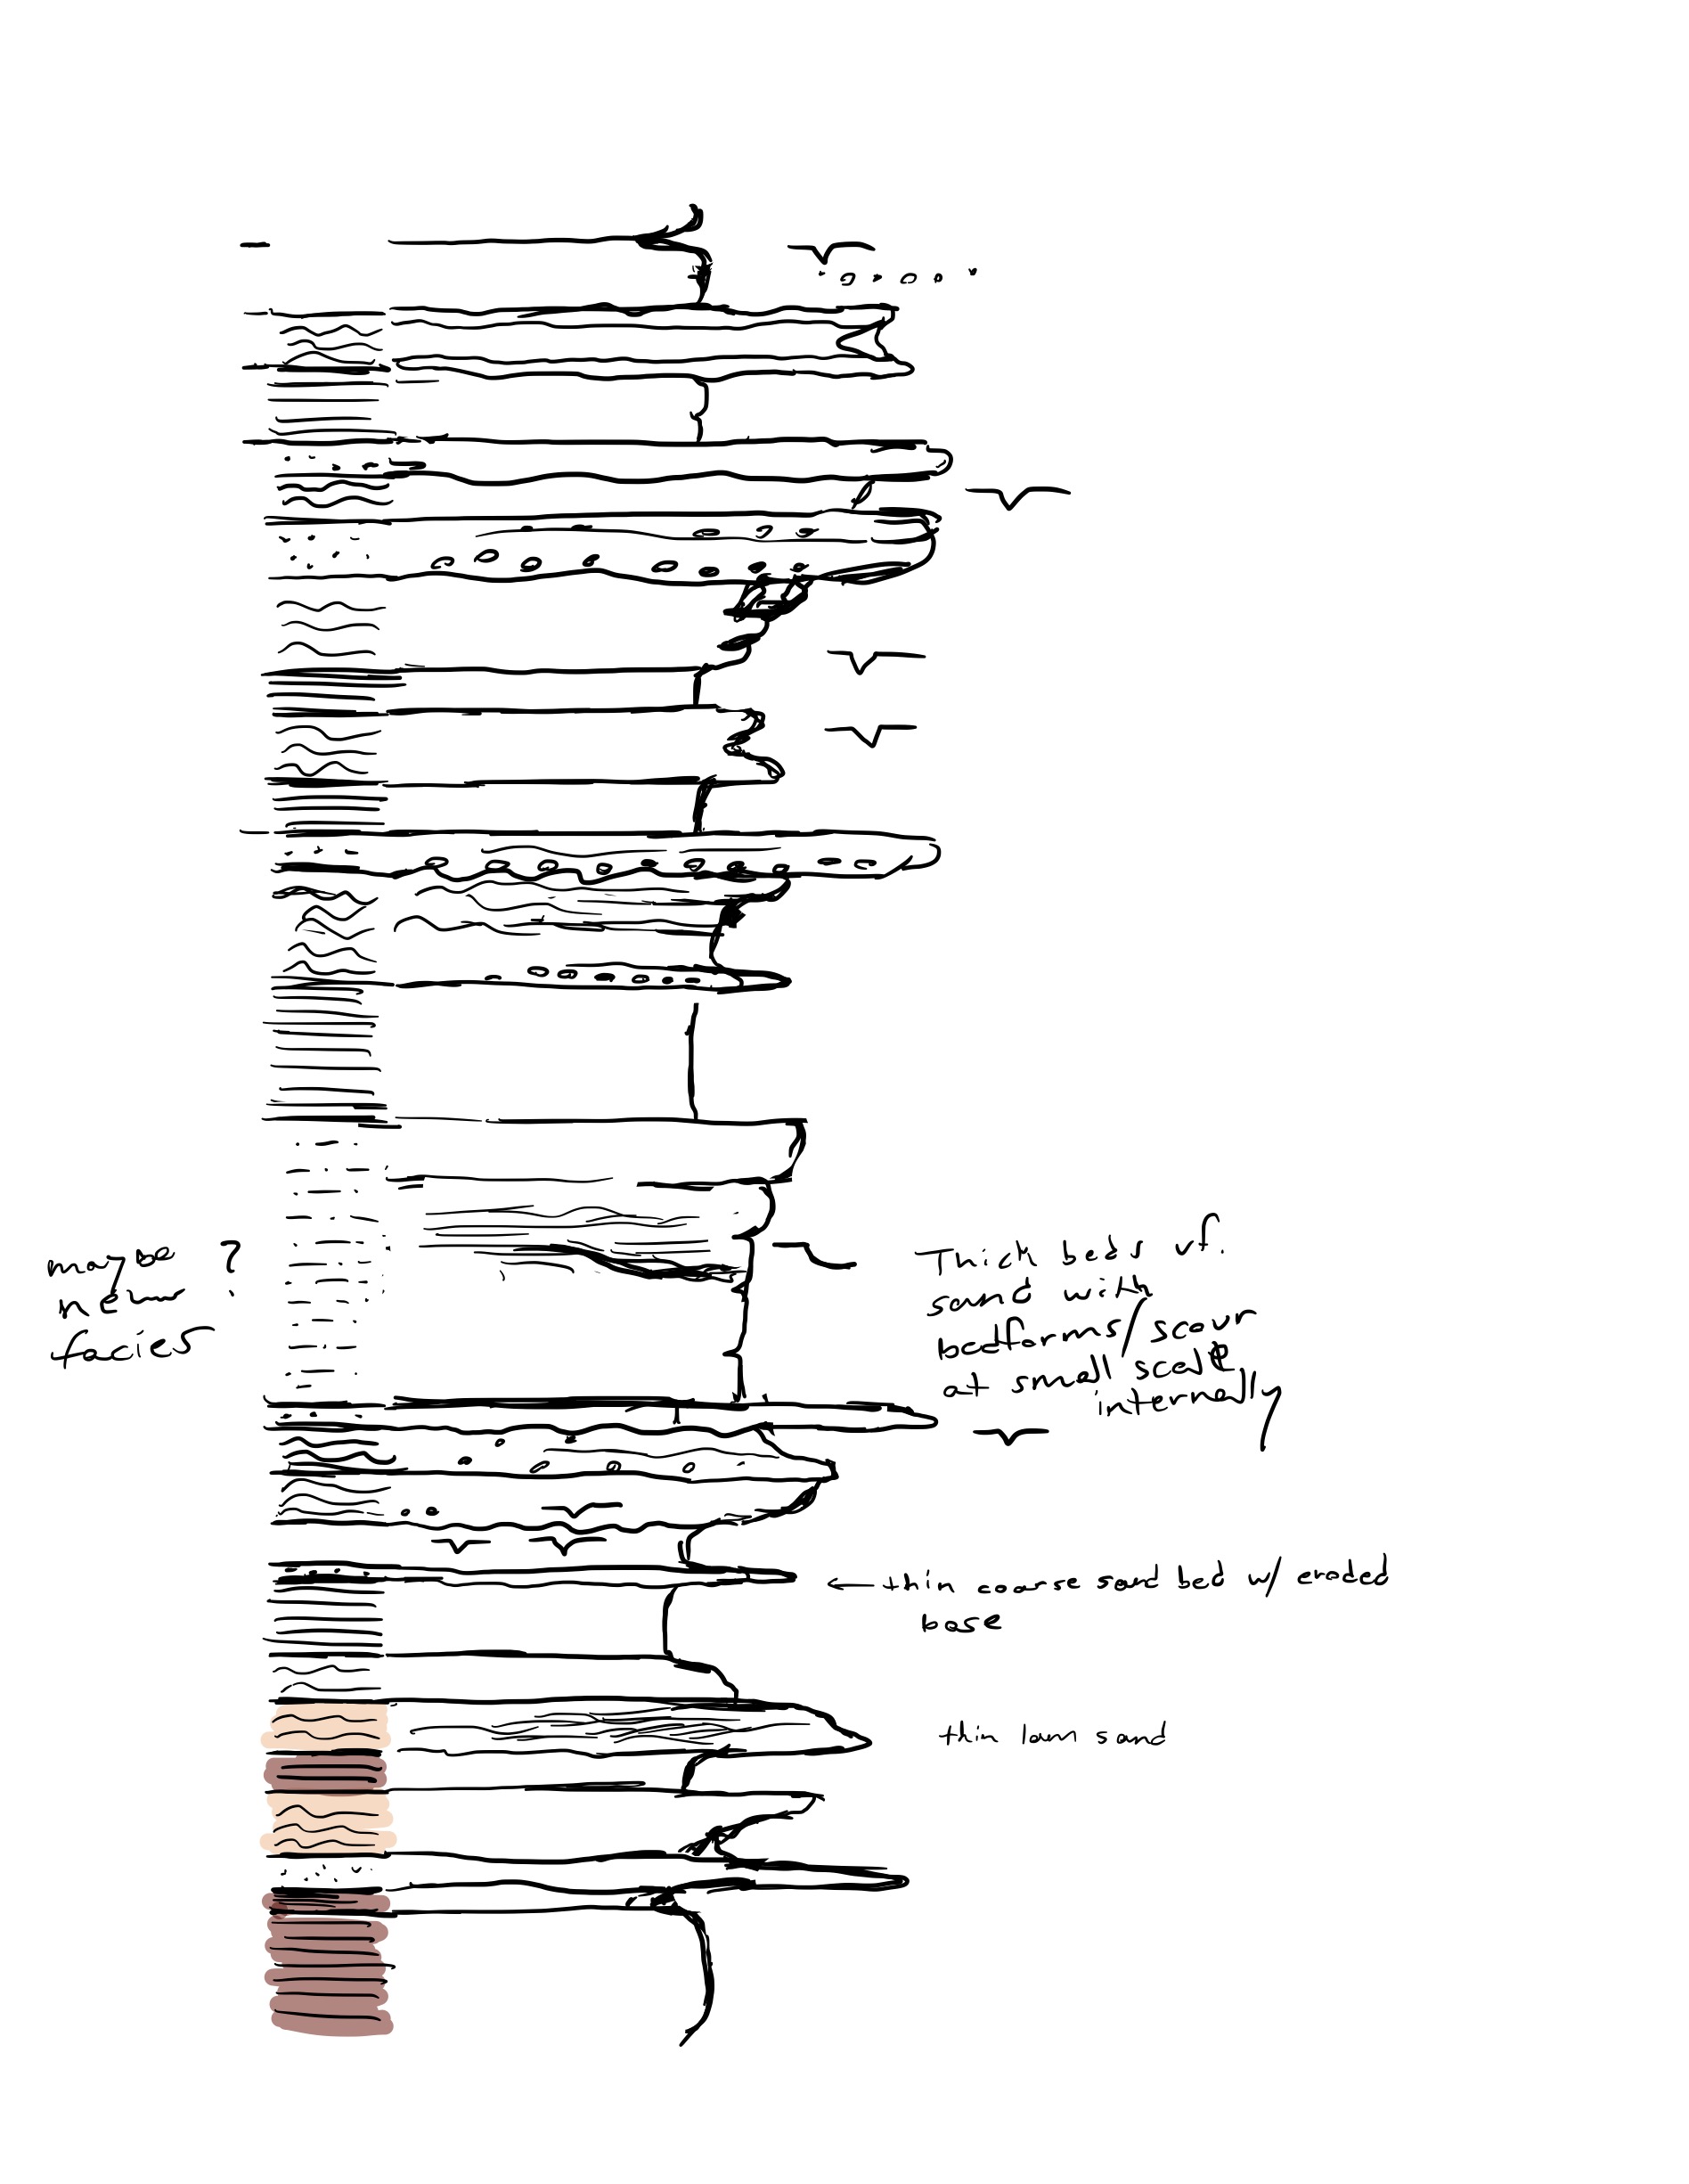 maybe ?
new
facies
Thick beds vf.
sand with
bedforms/scour
at small scale
internally
← thin coarse sand bed w/ eroded
base
thin lam sand